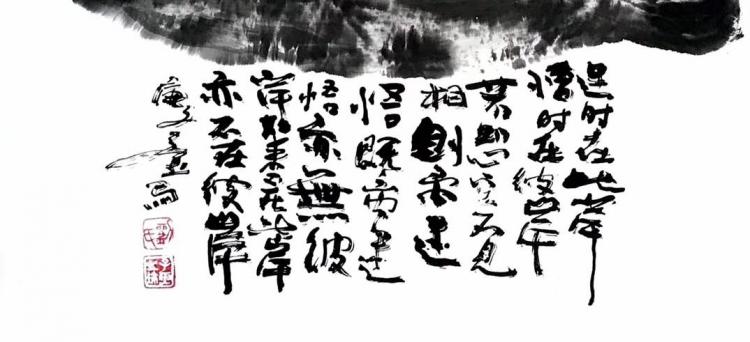 迷时在此岸
悟时在彼岸
若知心空不见
相則离迷
悟既离迷
悟亦無彼
岸如来不在此岸
亦不在彼岸
庚子